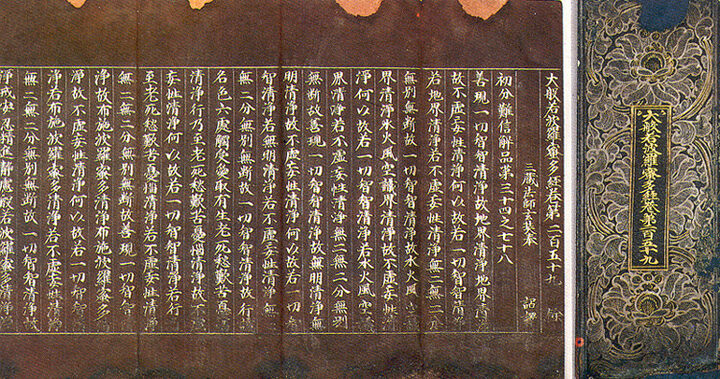 大般若波羅蜜多經卷第二百五十九
三藏法師玄奘奉 詔譯
初分難信解品第三十四之七十八
善現一切智智清淨故地界清淨地界清
故不虛妄性清淨何以故若一切智智清
若地界清淨若不虛妄性清淨無二無二
無別無斷故一切智智清淨故水火風
界清淨水火風空識界清淨故不虛妄性清
淨何以故若一切智智清淨若水火風空
界清淨若不虛妄性清淨無二無二分無別
無斷故善現一切智智清淨故無明清淨無
明清淨故不虛妄性清淨何以故若一切
智清淨若無明清淨若不虛妄性清淨無二
無二分無別無斷故一切智智清淨故行
名色六處觸受愛取有生老死愁歎苦憂
清淨行乃至老死愁歎苦憂惱清淨故不
妄性清淨何以故若一切智智清淨若行
至老死愁歎苦憂惱清淨若不虛妄性清淨
無二無二分無別無斷故善現一切智智
淨故布施波羅蜜多清淨布施波羅蜜多
淨故不虛妄性清淨何以故若一切智智清
淨若布施波羅蜜多清淨若不虛妄性清
無二無二分無別無斷故一切智智清淨
淨戒安忍精進靜慮般若波羅蜜多清淨
大般若波羅蜜多經卷第二百五十九